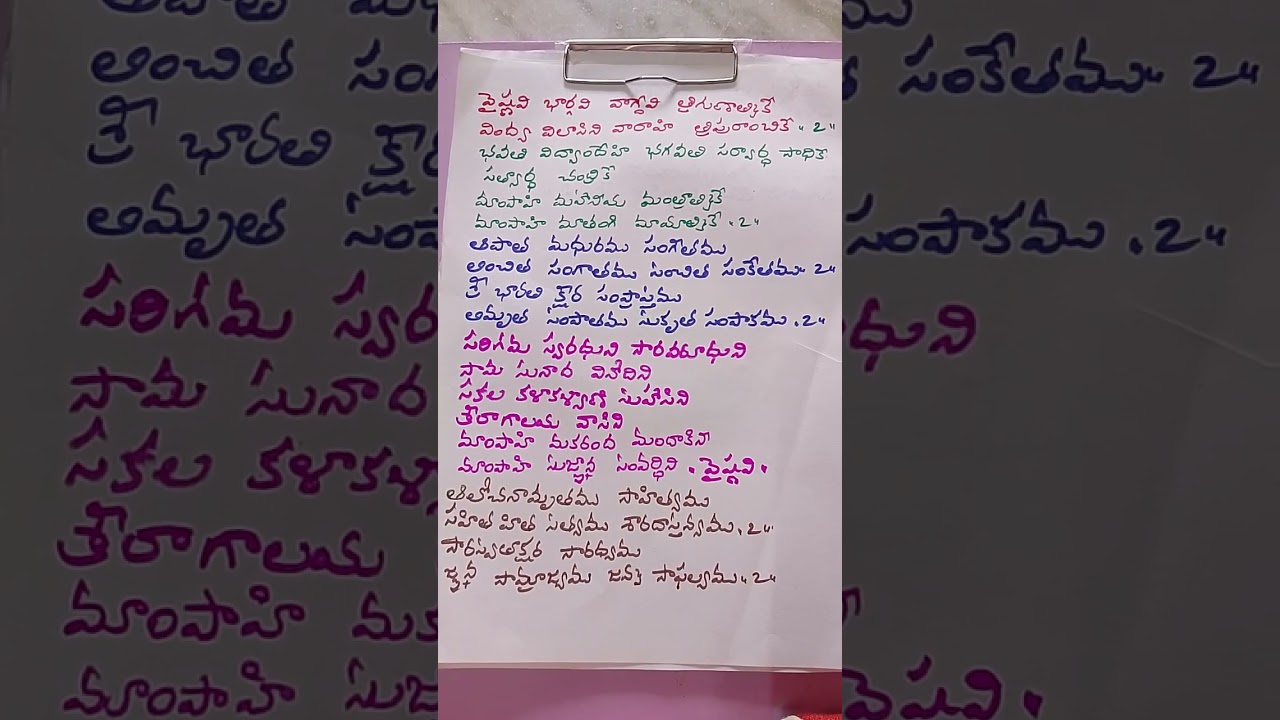 వైష్ణవి భార్గవి వాగ్దేవి త్రిగుణాత్మికే
వింధ్యా విలాసిని వారాహి త్రిపురాంబికే "2"
భవతి విద్యాందేహి భగవతి సర్వార్ధ సాధికే
సత్యార్ధ చంద్రికే
మాంపాహి మహనీయ మంత్రాత్మికే
మాంపాహి మాతంగి మాయాత్మికే "2"
ఆపాత మధురము సంగీతము
అంచిత సంగాతము సంచిత సంకేతము "2"
శ్రీ భారతి క్షీర సంప్రాప్తము
అమృత సంపాతము సుకృత సంపాకము "2"
సరిగమ స్వరధుని సారవరూధుని
సామ సునాద వినోదిని
సకల కళాకళ్యాణి సుహాసిని
శ్రీరాగాలయ వాసిని
మాంపాహి మకరంద మందాకిని
మాంపాహి సుజ్ఞాన సంవర్ధిని "వైష్ణవి"
ఆలోచనామృతము సాహిత్యము
సహిత హిత సత్యము శారదాస్తన్యము "2"
సారస్వతాక్షర సారధ్యము
జ్ఞాన సామ్రాజ్యము జన్మ సాఫల్యము "2"